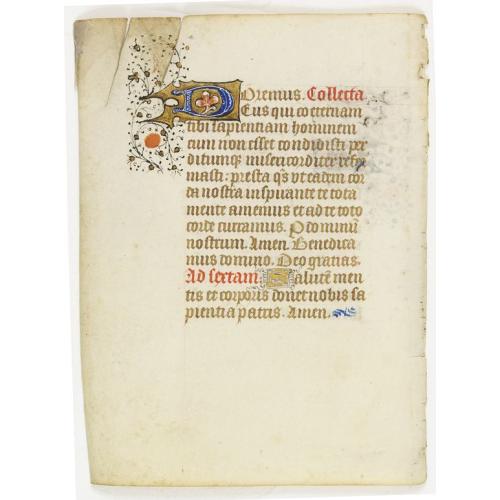 Oremus. Collecta
Deus qui coeternam
tibi sapientiam hominem
cum non esset condidisti per
ditumq; misericorditer refor
masti: presta qs vt eadem cor
da nostra inspirante te tota
mente amemus et ad te toto
corde curramus. P dominum
nostrum. Amen. Benedica
mus domino. Deo gratias.
Ad sextam Salutem men
tis et corporis donet nobis sa
pientia patris. Amen.